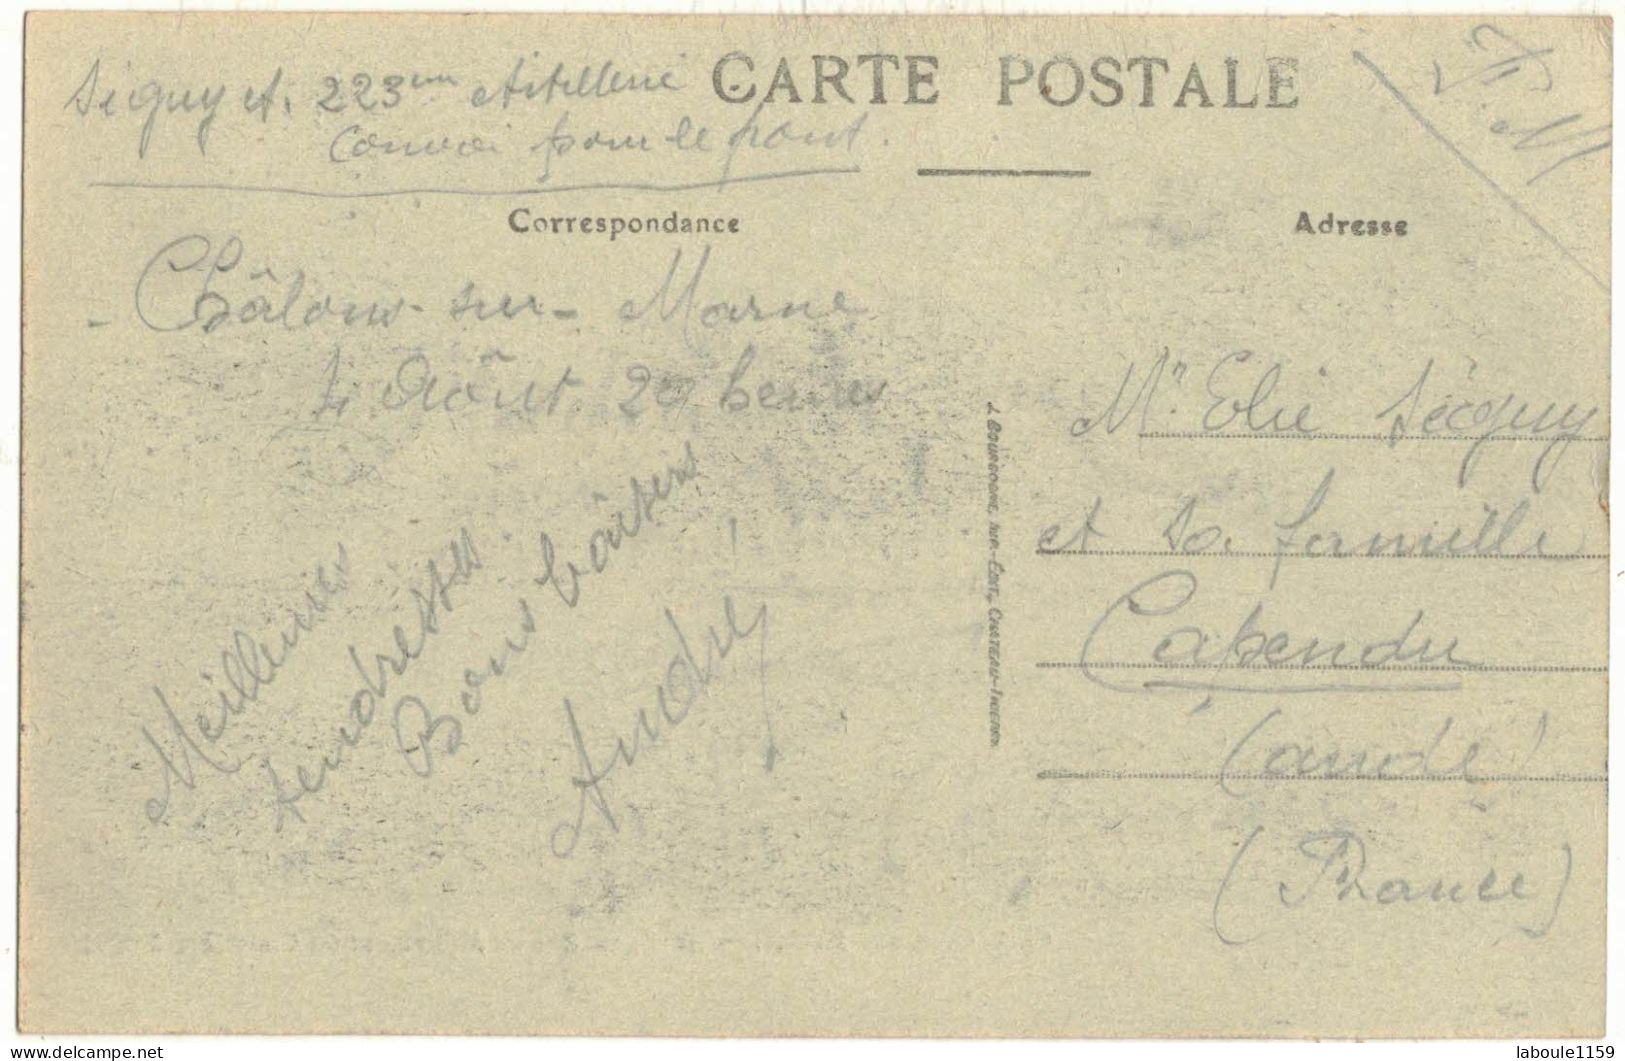 Séguy A. 223ème Artillerie
Convoi pour le front.
CARTE POSTALE
F. M
Correspondance
Adresse
- Châlons-sur-Marne
4 Août 20 heures
Meilleures
tendresses.
Bons baisers
!
André
J. BOURGOGNE, IMP.-ÉDIT., CHATEAU-THIERRY
Mr Elie Séguy
et sa famille
Capendu
(aude)
(France)
laboule1159